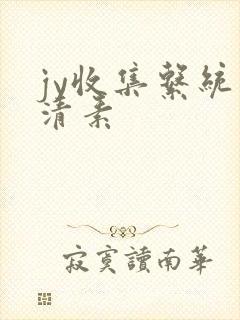 jy收集繫統
清素
寂寞讀南華